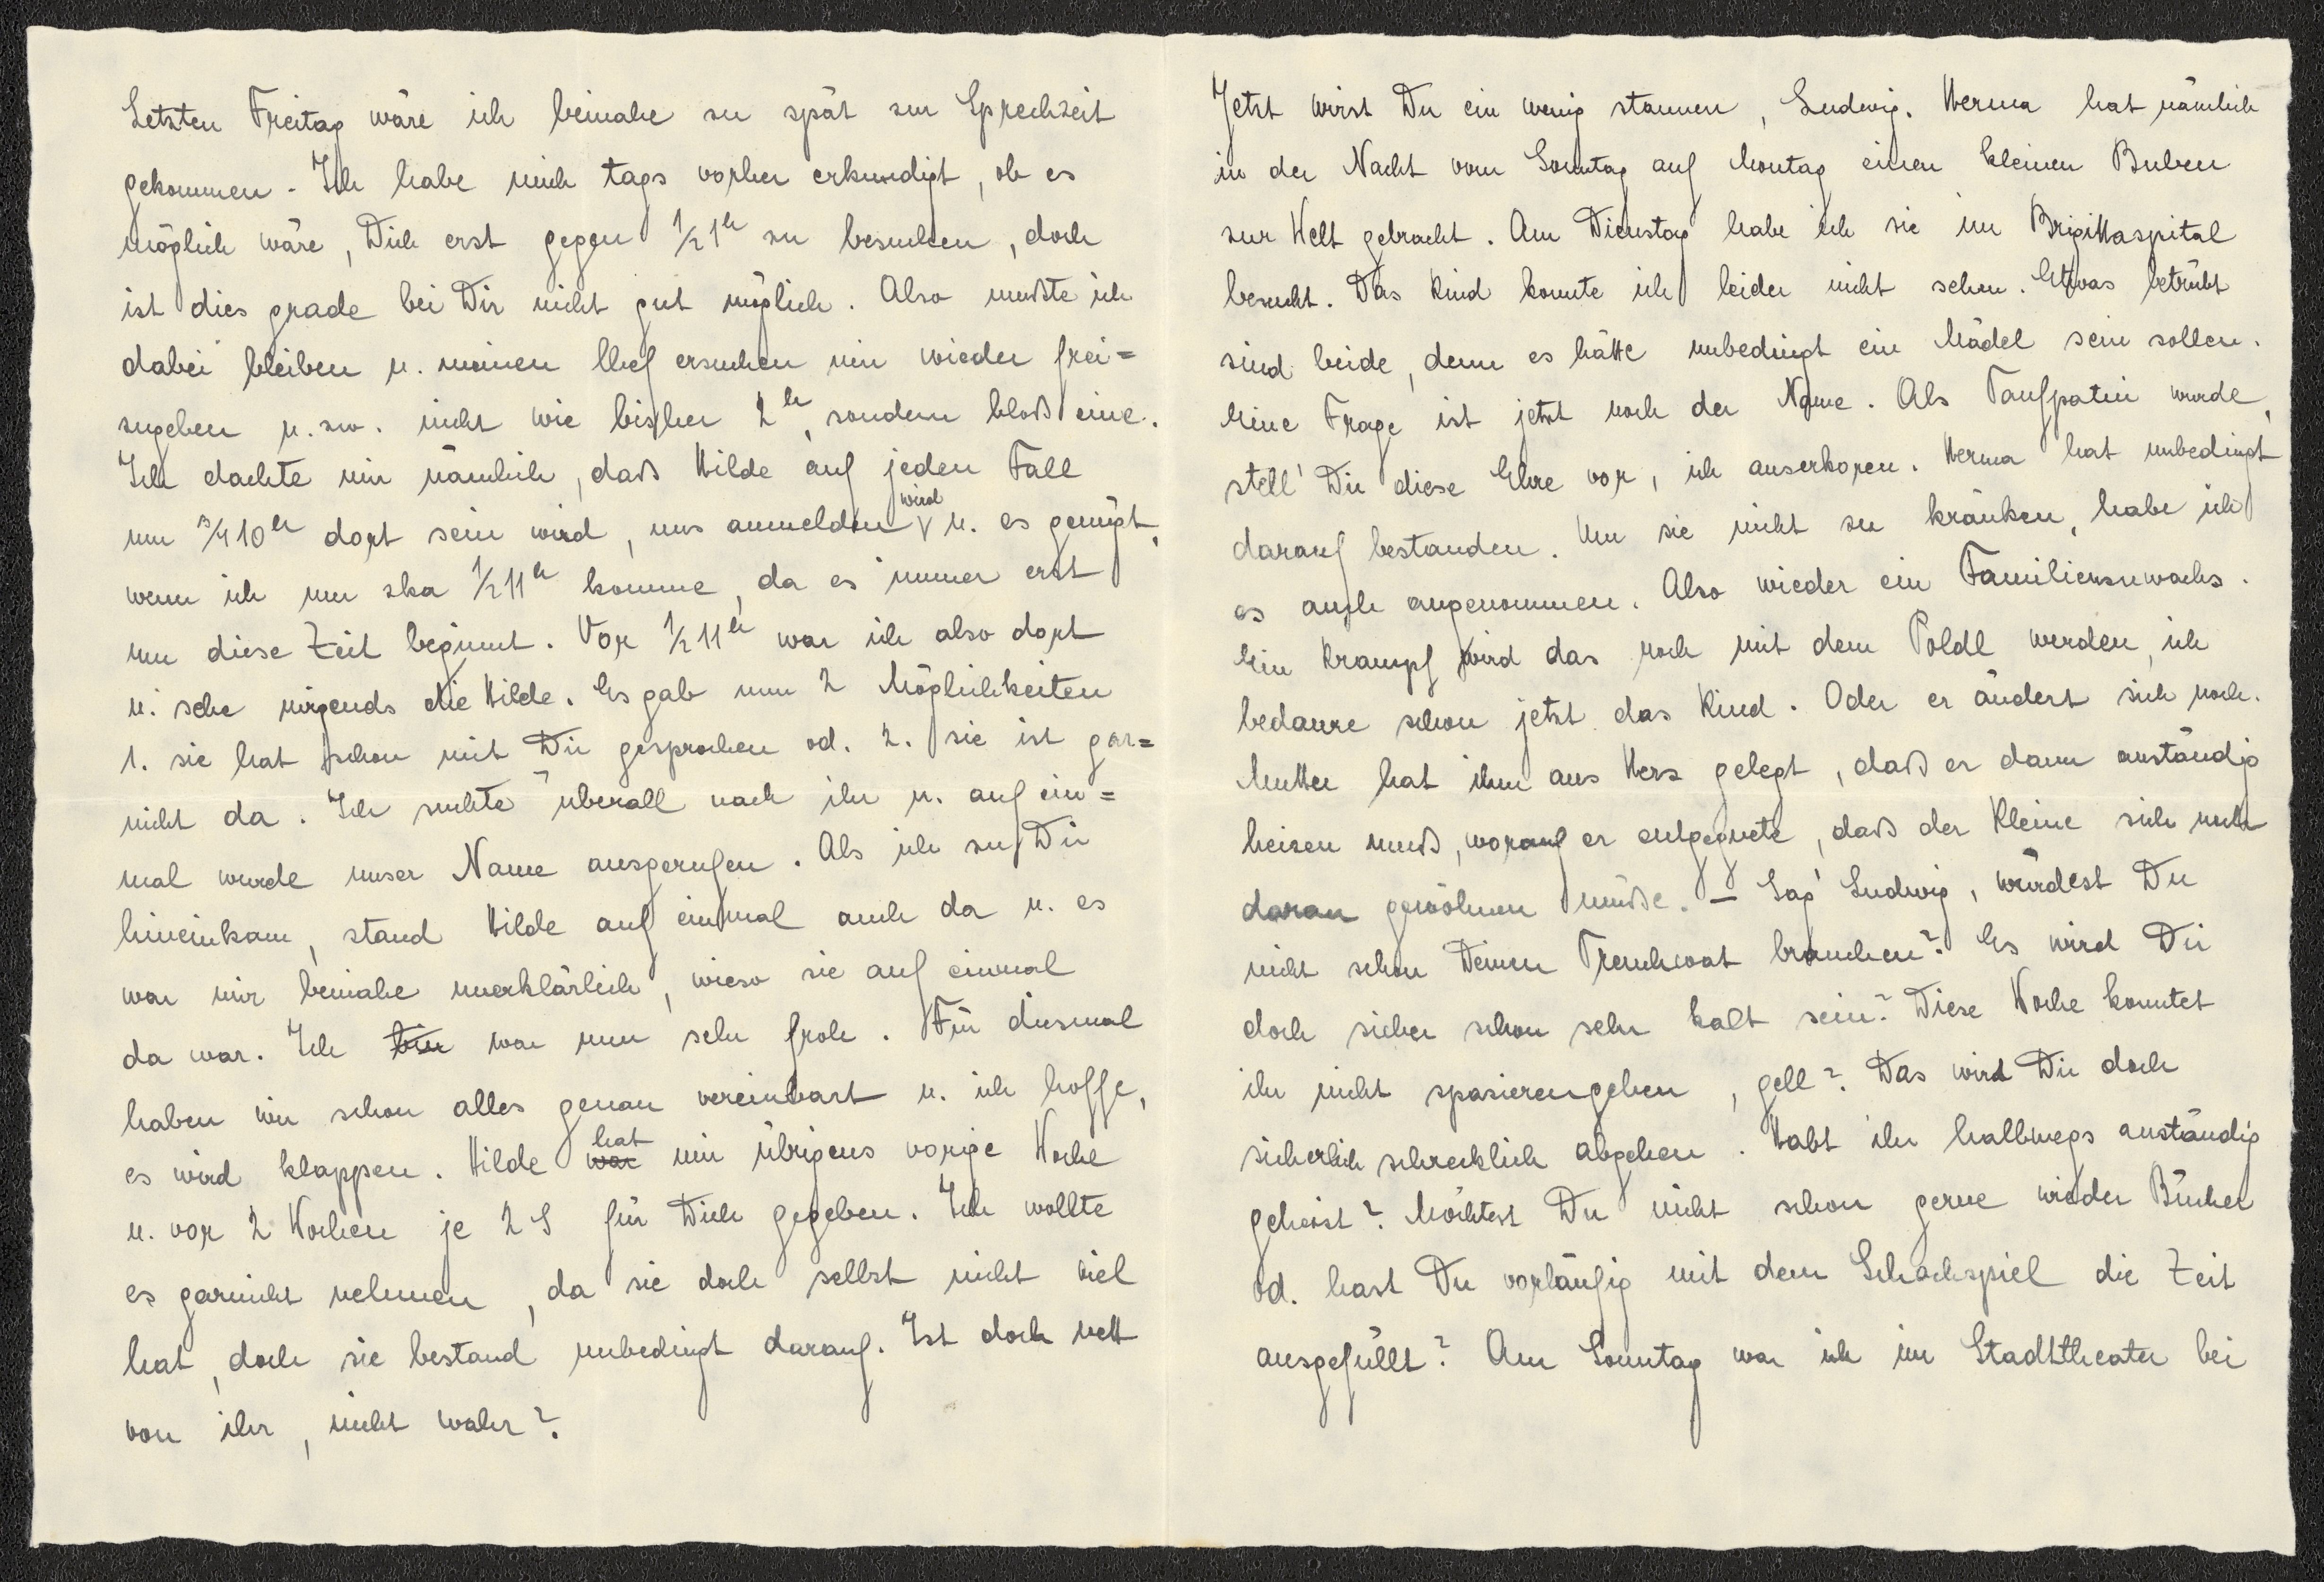 Letzten Freitag wäre ich beinahe zu spät zur Sprechzeit
gekommen. Ich habe mich tags vorher erkundigt, ob es
möglich wäre, Dich erst gegen ½1h zu besuchen, doch
ist dies grade bei Dir nicht gut möglich. Also mußte ich
dabei bleiben u. meinen Chef ersuchen mir wieder frei=
zugeben u. zw. nicht wie bisher 2h, sondern bloß eine.
Ich dachte mir nämlich, daß Hilde auf jeden Fall
um ¾10h dort sein wird, uns anmelden wird u. es genügt,
wenn ich um zka ½11h komme, da es immer erst
um diese Zeit beginnt. Vor ½11h war ich also dort
u. sehe nirgends die Hilde. Es gab nun 2 Möglichkeiten
1. sie hat schon mit Dir gesprochen od. 2. sie ist gar=
nicht da. Ich suchte überall nach ihr u. auf ein=
mal wurde unser Name ausgerufen. Als ich zu Dir
hineinkam, stand Hilde auf einmal auch da u. es
war mir beinahe unerklärlich, wieso sie auf einmal
da war. Ich bin war nun sehr froh. Für diesmal
haben wir schon alles genau vereinbart u. ich hoffe,
es wird klappen. Hilde war hat mir übrigens vorige Woche
u. vor 2 Wochen je 2 S für Dich gegeben. Ich wollte
es garnicht nehmen, da sie doch selbst nicht viel
hat, doch sie bestand unbedingt darauf. Ist doch nett
von ihr, nicht wahr?
Jetzt wirst Du ein wenig staunen, Ludwig. Herma hat nämlich
in der Nacht vom Sonntag auf Montag einen kleinen Buben
zur Welt gebracht. Am Dienstag habe ich sie im Brigittaspital
besucht. Das Kind konnte ich leider nicht sehen. Etwas betrübt
sind beide, denn es hätte unbedingt ein Mädel sein sollen.
Eine Frage ist jetzt noch der Name. Als Taufpatin wurde,
stell' Dir diese Ehre vor, ich auserkoren. Herma hat unbedingt
darauf bestanden. Um sie nicht zu kränken, habe ich
es auch angenommen. Also wieder ein Familienzuwachs.
Ein Krampf wird das noch mit dem Poldl werden, ich
bedaure schon jetzt das Kind. Oder er ändert sich noch.
Mutter hat ihm ans Herz gelegt, daß er dann anständig
heizen muß, worauf er entgegnete, daß der Kleine sich noch
daran gewöhnen müße. – Sag' Ludwig, würdest Du
nicht schon Deinen Trenchcoat brauchen? Es wird Dir
doch sicher schon sehr kalt sein? Diese Woche konntet
ihr nicht spazierengehen, gell? Das wird Dir doch
sicherlich schrecklich abgehen. Habt ihr halbwegs anständig
geheizt? Möchtest Du nicht schon gerne wieder Bücher
od. hast Du vorläufig mit dem Schachspiel die Zeit
ausgefüllt? Am Sonntag war ich im Stadttheater bei